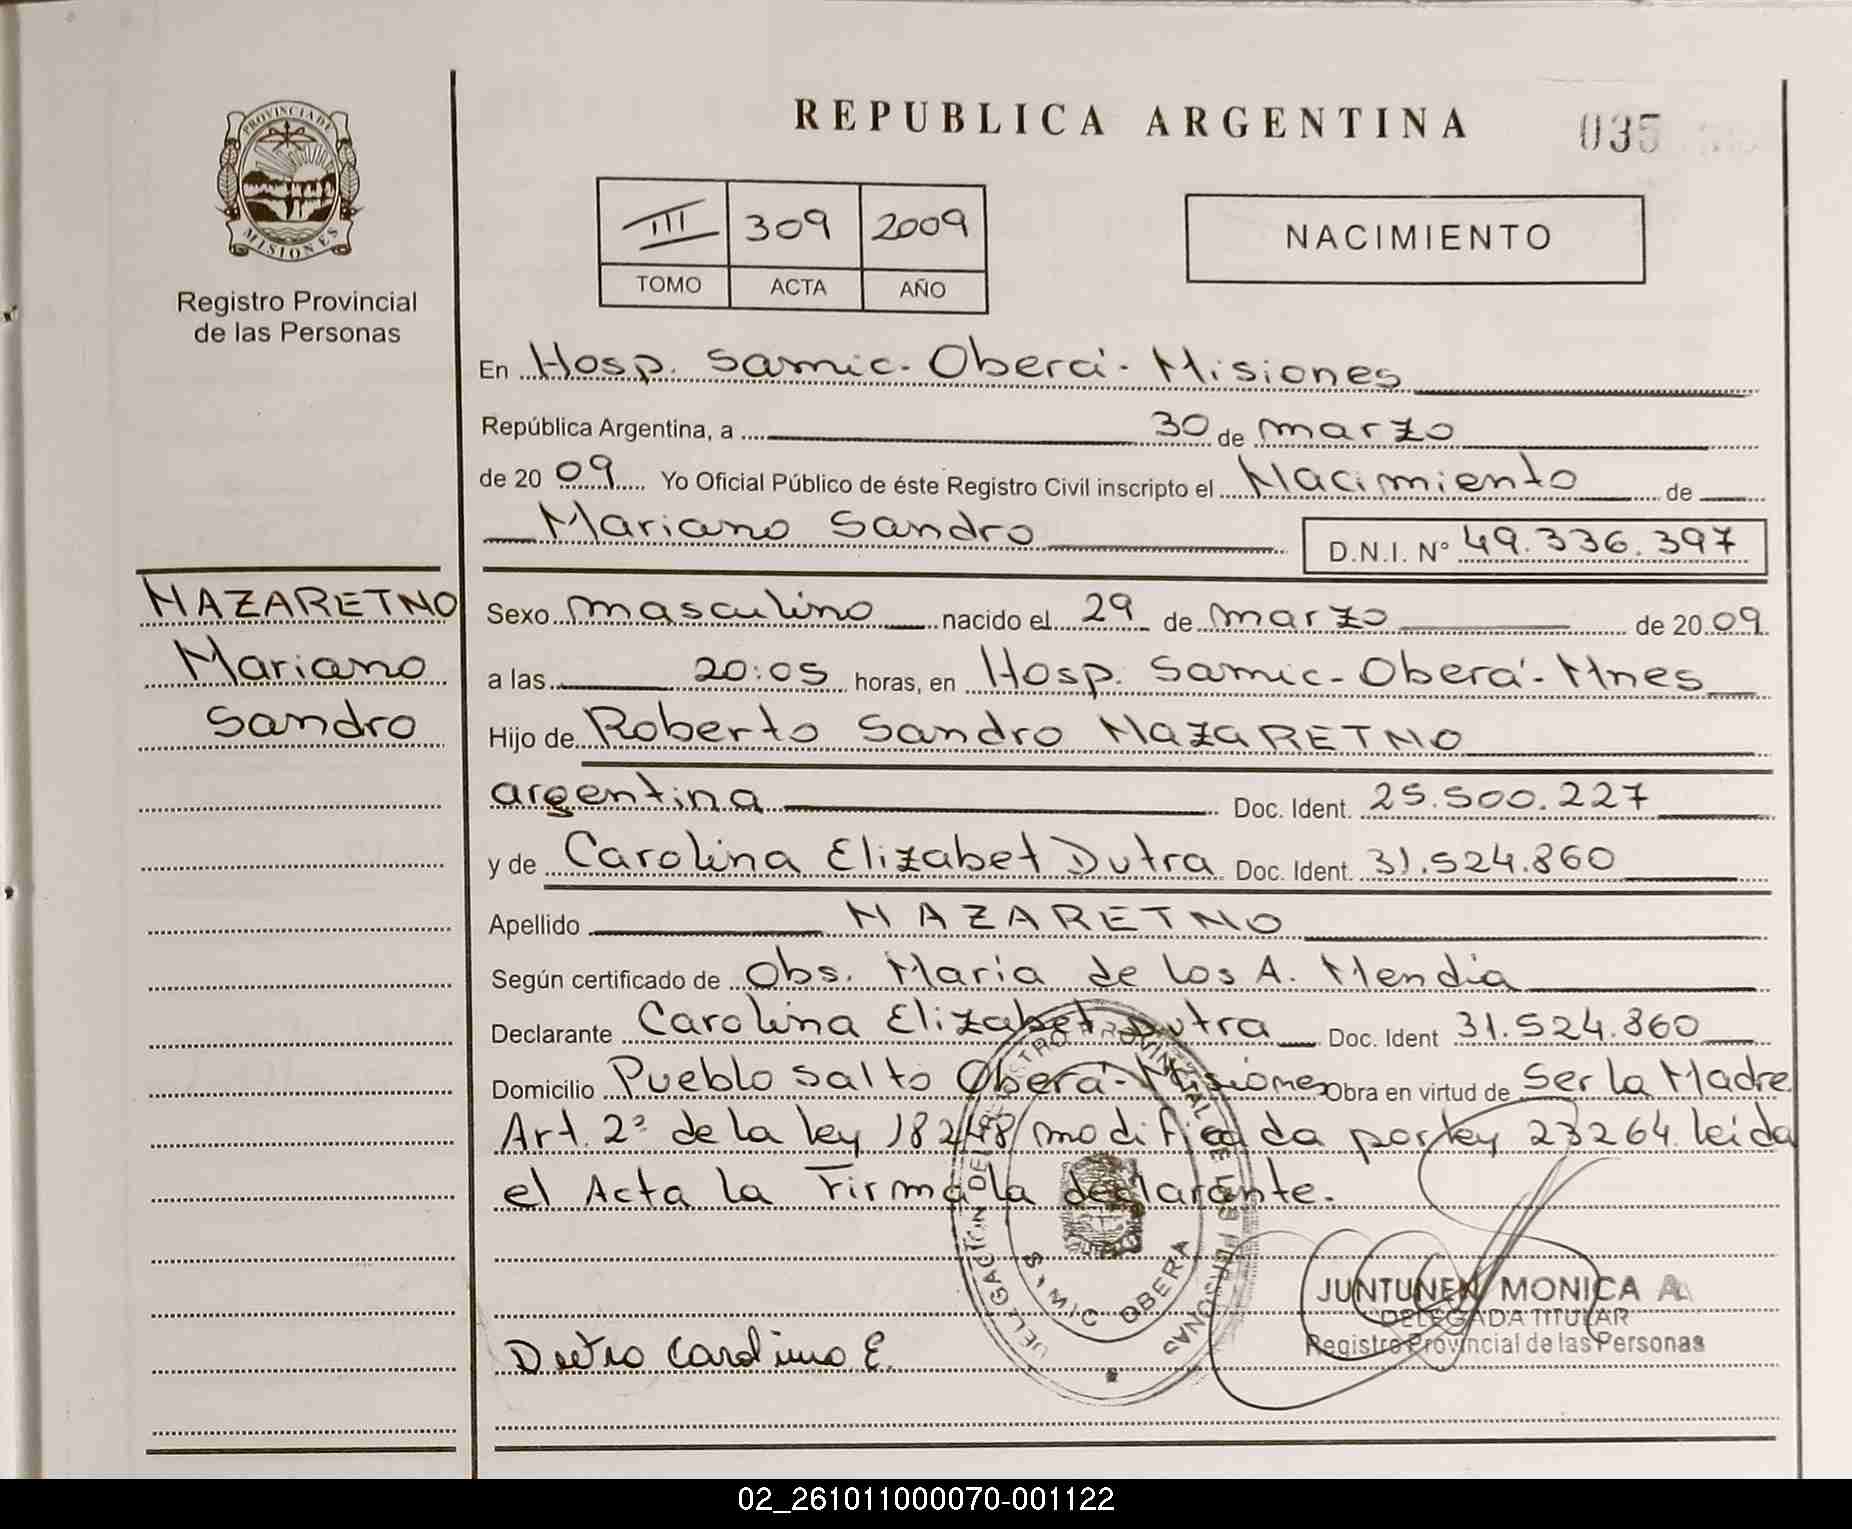 REPUBLICA ARGENTINA
035
PROVINCIA DE
MISIONES
Registro Provincial
de las Personas
III 309 2009
TOMO ACTA AÑO
NACIMIENTO
En Hosp. Samic - Oberá - Misiones
República Argentina, a 30 de marzo
de 20 09 Yo Oficial Público de éste Registro Civil inscripto el Nacimiento de
Mariano Sandro D.N.I. N° 49.336.397
NAZARETNO
Mariano
Sandro
Sexo masculino nacido el 29 de marzo de 20 09
a las 20:05 horas, en Hosp. Samic - Oberá - Mnes
Hijo de Roberto Sandro NAZARETNO
argentina Doc. Ident. 25.500.227
y de Carolina Elizabet Dutra Doc. Ident. 31.524.860
Apellido NAZARETNO
Según certificado de Obs. María de los A. Mendia
Declarante Carolina Elizabet Dutra Doc. Ident 31.524.860
Domicilio Pueblo Salto Oberá - Misiones Obra en virtud de Ser la Madre
Art. 2° de la ley 18248 modificada por ley 23264. leída
el Acta la Firma la declarante.
DELEGACION DEL REGISTRO PROVINCIAL DE LAS PERSONAS
OBERA
JUNTUNEN MONICA A.
DELEGADA TITULAR
Registro Provincial de las Personas
Dutra Carolina E.
02_261011000070-001122